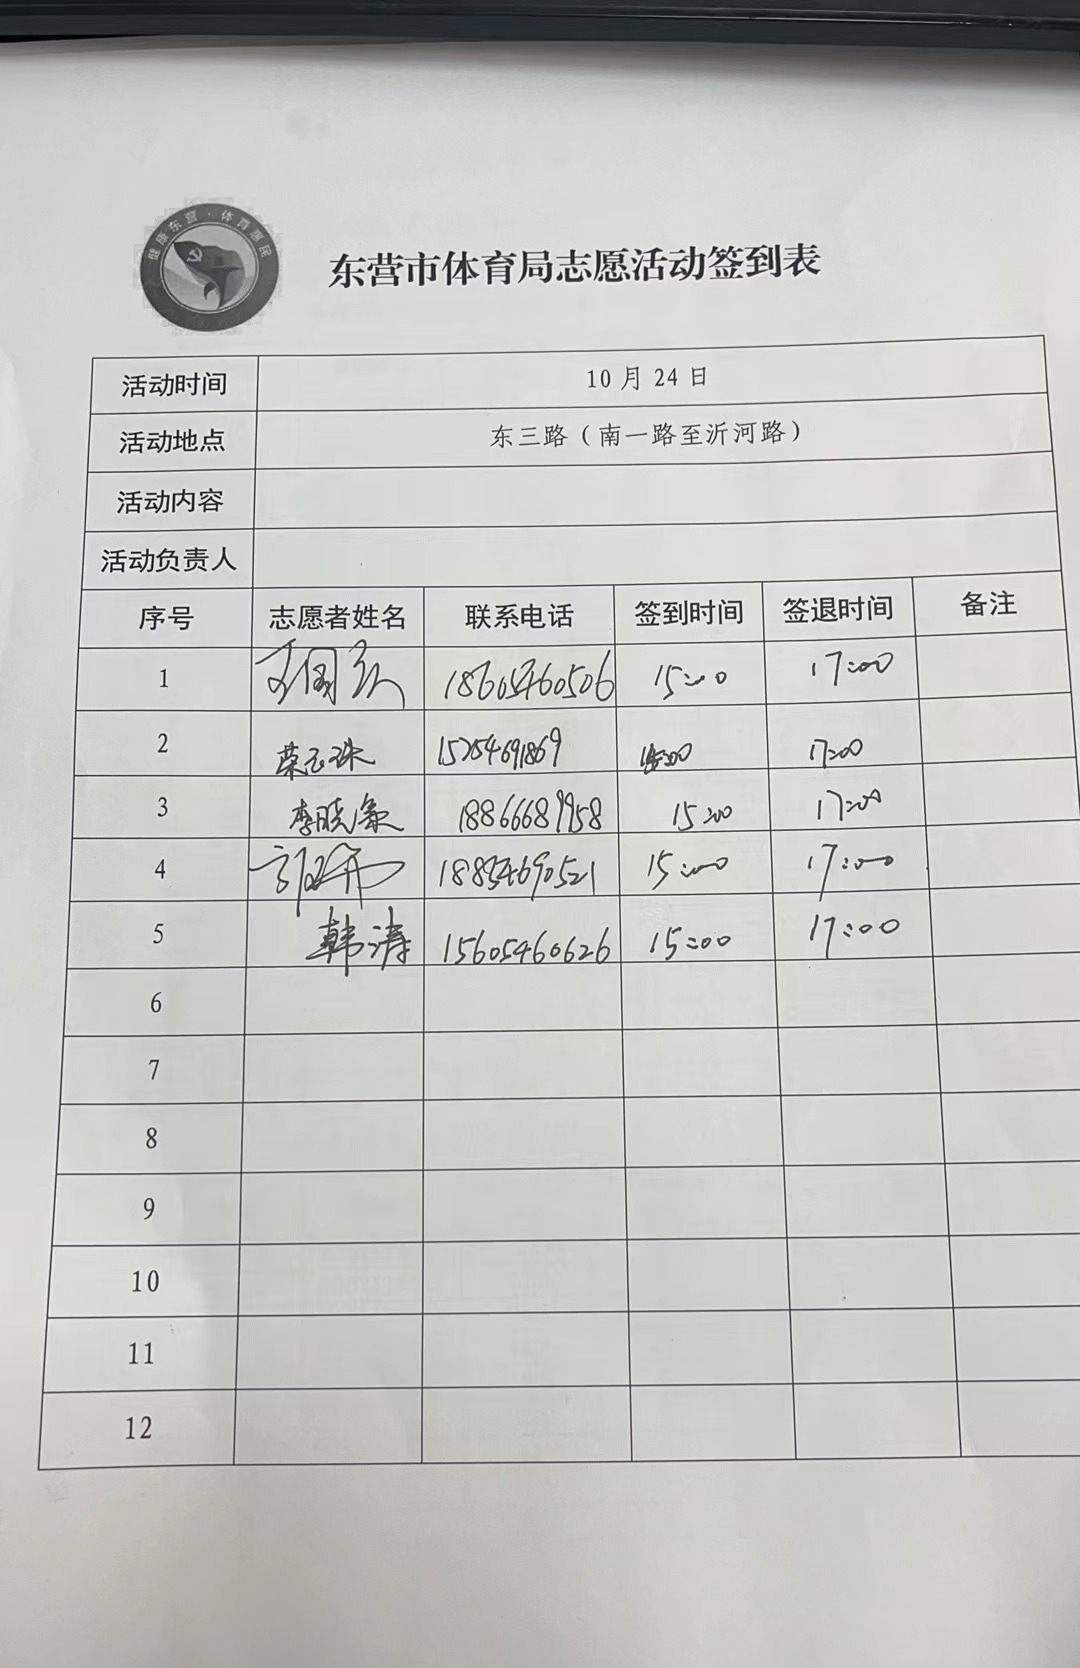 健康东营·体育惠民
东营市体育局志愿活动签到表
活动时间 10月24日
活动地点 东三路（南一路至沂河路）
活动内容
活动负责人
序号 志愿者姓名 联系电话 签到时间 签退时间 备注
1 18605460506 15:00 17:00
2 荣玉珠 15254691869 15:00 17:00
3 李晓敏 18866689958 15:00 17:00
4 18854690521 15:00 17:00
5 韩涛 15605460626 15:00 17:00
6
7
8
9
10
11
12